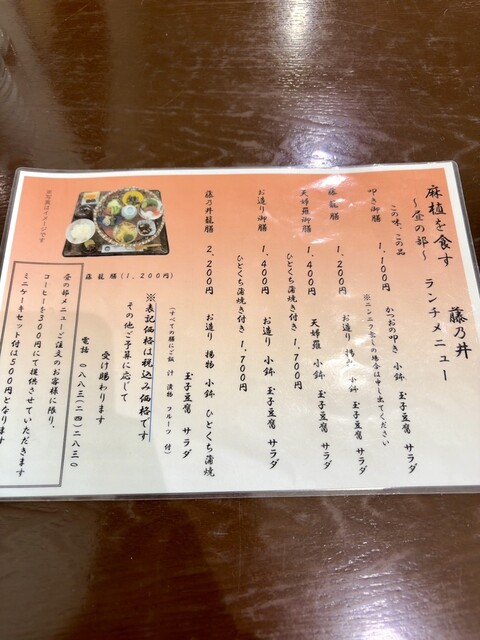 麻植を食す 藤乃井
〜昼の部〜 ランチメニュー
この味、この品
叩き御膳 1,100円 かつおの叩き 小鉢 玉子豆腐 サラダ
※ニンニク無しの場合は申し出てください
藤龍膳 1,200円 お造り 揚物 小鉢 玉子豆腐 サラダ
天婦羅御膳 1,400円 天婦羅 小鉢 玉子豆腐 サラダ
ひとくち蒲焼き付き 1,700円
お造り御膳 1,400円 お造り 小鉢 玉子豆腐 サラダ
ひとくち蒲焼き付き 1,700円
藤乃井龍膳 2,200円 お造り 揚物 小鉢 ひとくち蒲焼
玉子豆腐 サラダ
(すべての膳にご飯 汁 漬物 フルーツ 付)
※表記価格は税込み価格です
その他ご予算に応じて
受け賜わります
電話 0883(24)2830
藤龍膳(1,200円)
※写真はイメージです
昼の部メニューご注文のお客様に限り、
コーヒーを300円にて提供させていただきます
ミニケーキセット付は500円となります